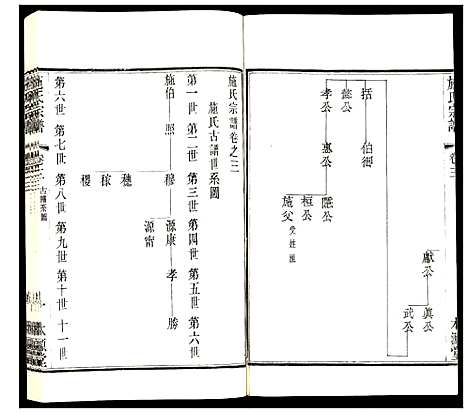 施氏宗譜 卷三
獻公
真公
武公
括
伯御
懿公
孝公
惠公
隱公
桓公
施父 受姓祖
施氏宗譜卷之三
施氏古譜世系圖
第一世 第二世 第三世 第四世 第五世 第六世
施伯 照 穆 源康 孝 勝
源甯
穗
稼
稷
第六世 第七世 第八世 第九世 第十世 十一世
施氏宗譜
古譜系圖